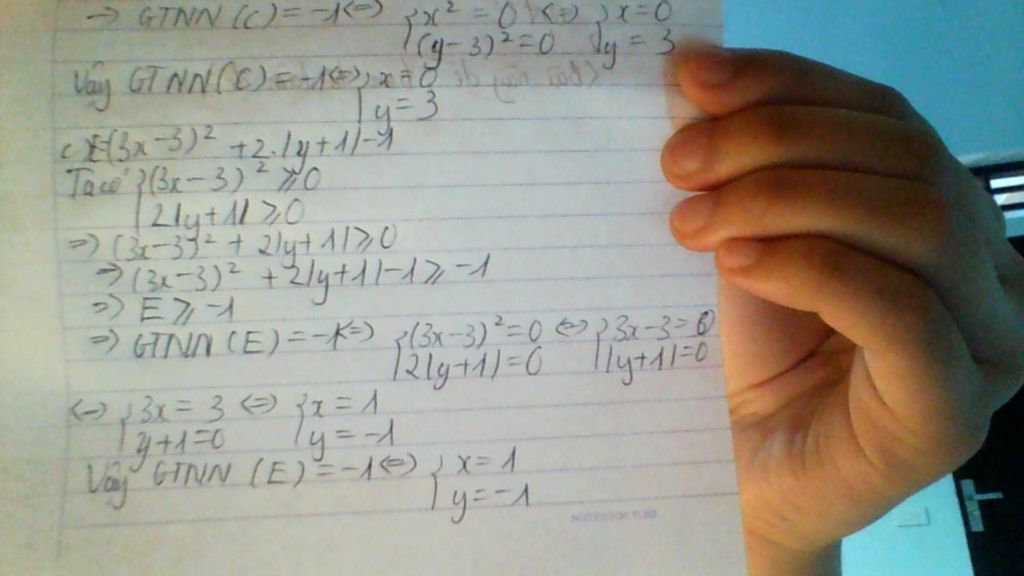 → GTNN (C) = -1 <=> { x² = 0 <=> { x = 0
(y-3)² = 0 y = 3
Vậy GTNN (C) = -1 <=> { x = 0
y = 3
c) E=(3x-3)² + 2.|y+1|-1
Ta có { (3x-3)² ⩾ 0
2|y+1| ⩾ 0
=> (3x-3)² + 2|y+1| ⩾ 0
=> (3x-3)² + 2|y+1|-1 ⩾ -1
=> E ⩾ -1
=> GTNN (E) = -1 <=> { (3x-3)² = 0 <=> { 3x-3 = 0
2|y+1| = 0 |y+1| = 0
<=> { 3x = 3 <=> { x = 1
y+1 = 0 y = -1
Vậy GTNN (E) = -1 <=> { x = 1
y = -1